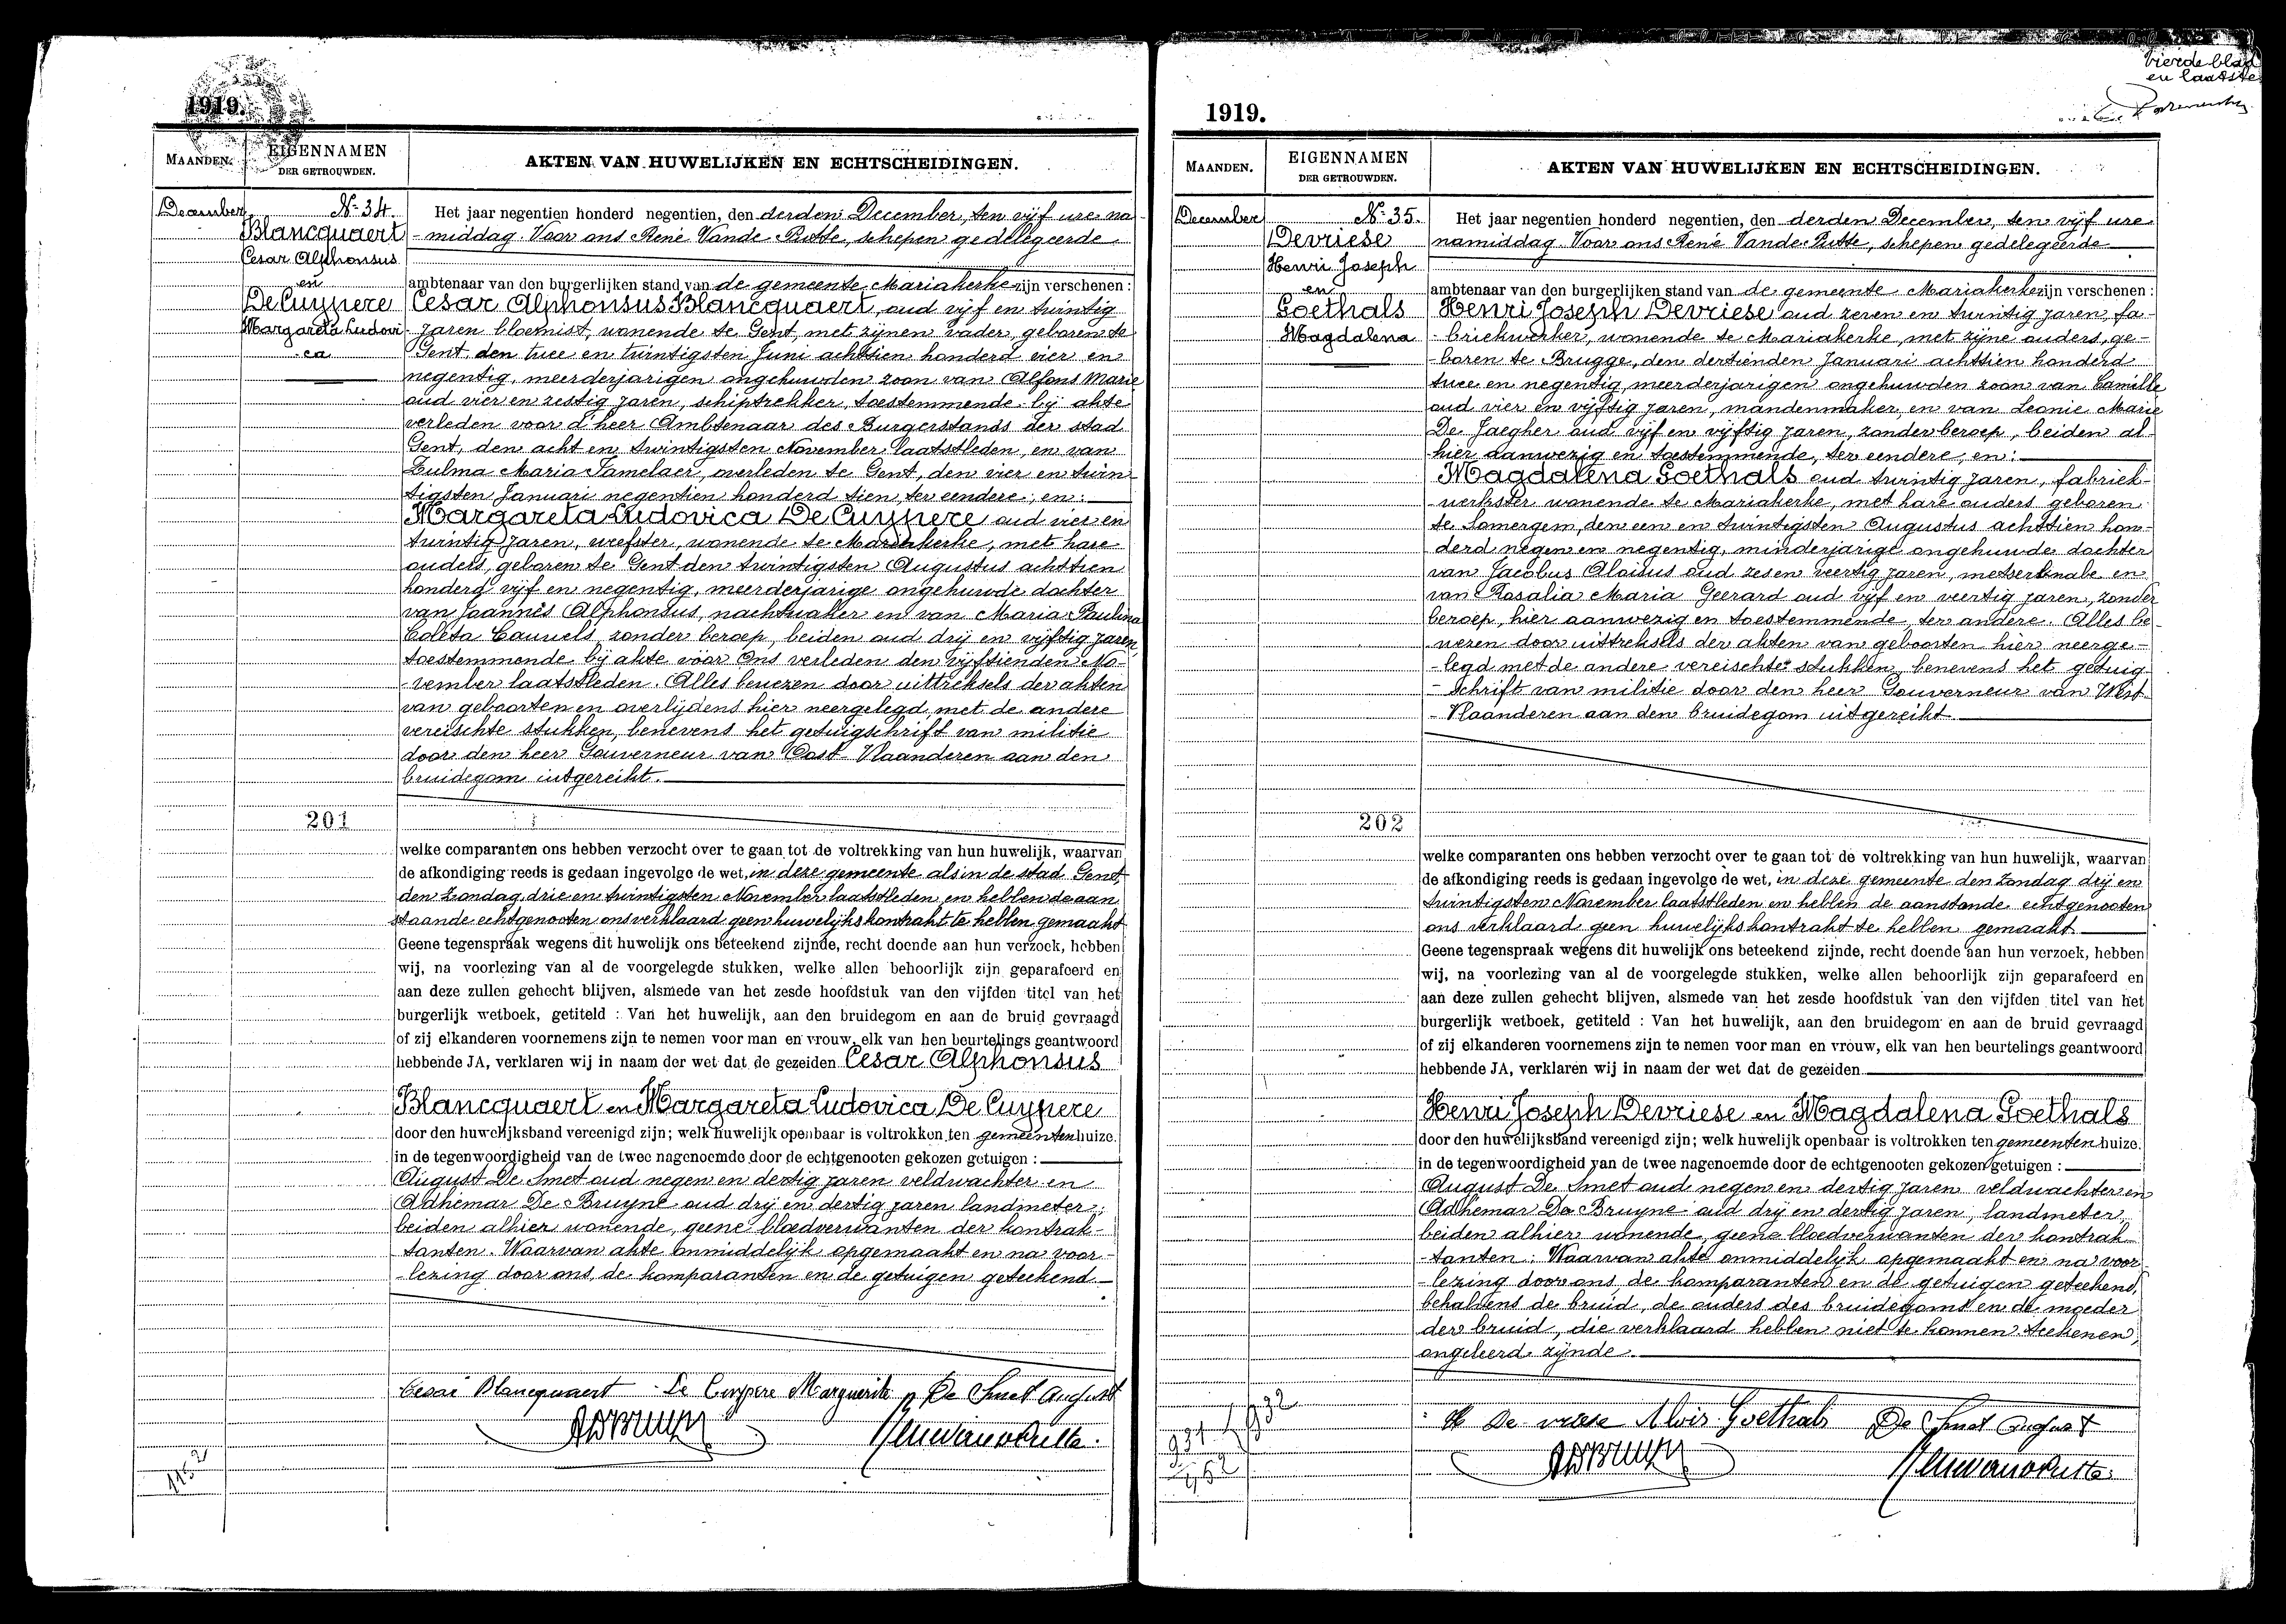 1919.
MAANDEN.
EIGENNAMEN
DER GETROUWDEN.
AKTEN VAN HUWELIJKEN EN ECHTSCHEIDINGEN.
December
N.-34.
Blancquaert
Cesar Alphonsus
en
De Cuypere
Margareta Ludovi-
ca
Het jaar negentien honderd negentien, den derden December, ten vijf ure na
-middag. Voor ons René Vande Putte, schepen gedelegeerde
ambtenaar van den burgerlijken stand van de gemeente Mariakerke zijn verschenen :
Cesar Alphonsus Blancquaert, oud vijf en twintig
jaren bloemist, wonende te Gent, met zijnen vader, geboren te
Gent den twee en twintigsten Juni achttien honderd vier en
negentig, meerderjarigen ongehuwden zoon van Alfons Marie
oud vier en zestig jaren, schiptrekker, toestemmende bij akte
verleden voor d'heer Ambtenaar des Burgerstands der stad
Gent, den acht en twintigsten November laatstleden, en van
Zulma Maria Tamelaer, overleden te Gent, den vier en twin
tigsten Januari negentien honderd tien, ter eendere, en:
Margareta Ludovica De Cuypere oud vier en
twintig jaren, weefster, wonende te Mariakerke, met hare
ouders, geboren te Gent den twintigsten Augustus achttien
honderd vijf en negentig, meerderjarige ongehuwde dochter
van Joannes Alphonsus, nachtwaker en van Maria Paulina
Coleta Cauwels, zonder beroep, beiden oud drij en vijftig jaren,
toestemmende bij akte voor Ons verleden den vijftienden No-
-vember laatstleden. Alles bewezen door uittreksels der akten
van geboorten en overlijdens hier neergelegd met de andere
vereischte stukken, benevens het getuigschrift van militie
door den heer Gouverneur van Oost-Vlaanderen aan den
bruidegom uitgereikt.
201
welke comparanten ons hebben verzocht over te gaan tot de voltrekking van hun huwelijk, waarvan
de afkondiging reeds is gedaan ingevolge de wet, in deze gemeente als in de stad Gent,
den Zondag drie en twintigsten November laatstleden en hebben de aan
staande echtgenooten ons verklaard geen huwelijkskontrakt te hebben gemaakt
Geene tegenspraak wegens dit huwelijk ons beteekend zijnde, recht doende aan hun verzoek, hebben
wij, na voorlezing van al de voorgelegde stukken, welke allen behoorlijk zijn geparafeerd en
aan deze zullen gehecht blijven, alsmede van het zesde hoofdstuk van den vijfden titel van het
burgerlijk wetboek, getiteld : Van het huwelijk, aan den bruidegom en aan de bruid gevraagd
of zij elkanderen voornemens zijn te nemen voor man en vrouw, elk van hen beurtelings geantwoord
hebbende JA, verklaren wij in naam der wet dat de gezeiden Cesar Alphonsus
Blancquaert en Margareta Ludovica De Cuypere
door den huwelijksband vereenigd zijn; welk huwelijk openbaar is voltrokken ten gemeentenhuize.
in de tegenwoordigheid van de twee nagenoemde door de echtgenooten gekozen getuigen :
August De Smet oud negen en dertig jaren veldwachter en
Adhemar De Bruyne oud drij en dertig jaren landmeter;
beiden alhier wonende, geene bloedverwanten der kontrak-
tanten. Waarvan akte onmiddelijk opgemaakt en na voor-
-lezing door ons, de komparanten en de getuigen geteekend.
Cesar Blancquaert De Cuypere Marguerite De Smet August
Vierde blad
en laatste
1919.
MAANDEN.
EIGENNAMEN
DER GETROUWDEN.
AKTEN VAN HUWELIJKEN EN ECHTSCHEIDINGEN.
December
N.-35.
Devriese
Henri Joseph
en
Goethals
Magdalena
Het jaar negentien honderd negentien, den derden December, ten vijf ure
namiddag. Voor ons René Vande Putte, schepen gedelegeerde
ambtenaar van den burgerlijken stand van de gemeente Mariakerke zijn verschenen :
Henri Joseph Devriese oud zeven en twintig jaren, fa-
-briekwerker, wonende te Mariakerke, met zijne ouders, ge-
-boren te Brugge, den dertienden Januari achttien honderd
twee en negentig, meerderjarigen ongehuwden zoon van Camille
oud vier en vijftig jaren, mandenmaker, en van Leonie Marie
De Jaegher oud vijf en vijftig jaren, zonder beroep, beiden al-
hier aanwezig en toestemmende, ter eendere, en:
Magdalena Goethals oud twintig jaren, fabriek-
-werkster wonende te Mariakerke, met hare ouders geboren
te Somergem, den een en twintigsten Augustus achttien hon-
derd negen en negentig, minderjarige ongehuwde dochter
van Jacobus Aloisus oud zes en veertig jaren, metserknabe en
van Rosalia Maria Geerard oud vijf en veertig jaren, zonder
beroep, hier aanwezig en toestemmende, ter andere. Alles be-
wezen door uittreksels der akten van geboorten hier neerge-
-legd met de andere vereischte stukken, benevens het getuig
-schrift van militie door den heer Gouverneur van West
-Vlaanderen aan den bruidegom uitgereikt
202
welke comparanten ons hebben verzocht over te gaan tot de voltrekking van hun huwelijk, waarvan
de afkondiging reeds is gedaan ingevolge de wet, in deze gemeente den Zondag drij en
twintigsten November laatstleden en hebben de aanstande echtgenooten
ons verklaard geen huwelijkskontrakt te hebben gemaakt
Geene tegenspraak wegens dit huwelijk ons beteekend zijnde, recht doende aan hun verzoek, hebben
wij, na voorlezing van al de voorgelegde stukken, welke allen behoorlijk zijn geparafeerd en
aan deze zullen gehecht blijven, alsmede van het zesde hoofdstuk van den vijfden titel van het
burgerlijk wetboek, getiteld : Van het huwelijk, aan den bruidegom en aan de bruid gevraagd
of zij elkanderen voornemens zijn te nemen voor man en vrouw, elk van hen beurtelings geantwoord
hebbende JA, verklaren wij in naam der wet dat de gezeiden
Henri Joseph Devriese en Magdalena Goethals
door den huwelijksband vereenigd zijn; welk huwelijk openbaar is voltrokken ten gemeentenhuize.
in de tegenwoordigheid van de twee nagenoemde door de echtgenooten gekozen getuigen :
August De Smet oud negen en dertig jaren veldwachter en
Adhemar De Bruyne oud drij en dertig jaren, landmeter
beiden alhier wonende, geene bloedverwanten der kontrak
-tanten. Waarvan akte onmiddelijk opgemaakt en na voor
-lezing door ons de komparanten en de getuigen geteekend,
behalvens de bruid, de ouders des bruidegoms en de moeder
der bruid, die verklaard hebben niet te konnen teekenen,
ongeleerd zijnde.
De vriese Alois Goethals De Smet August